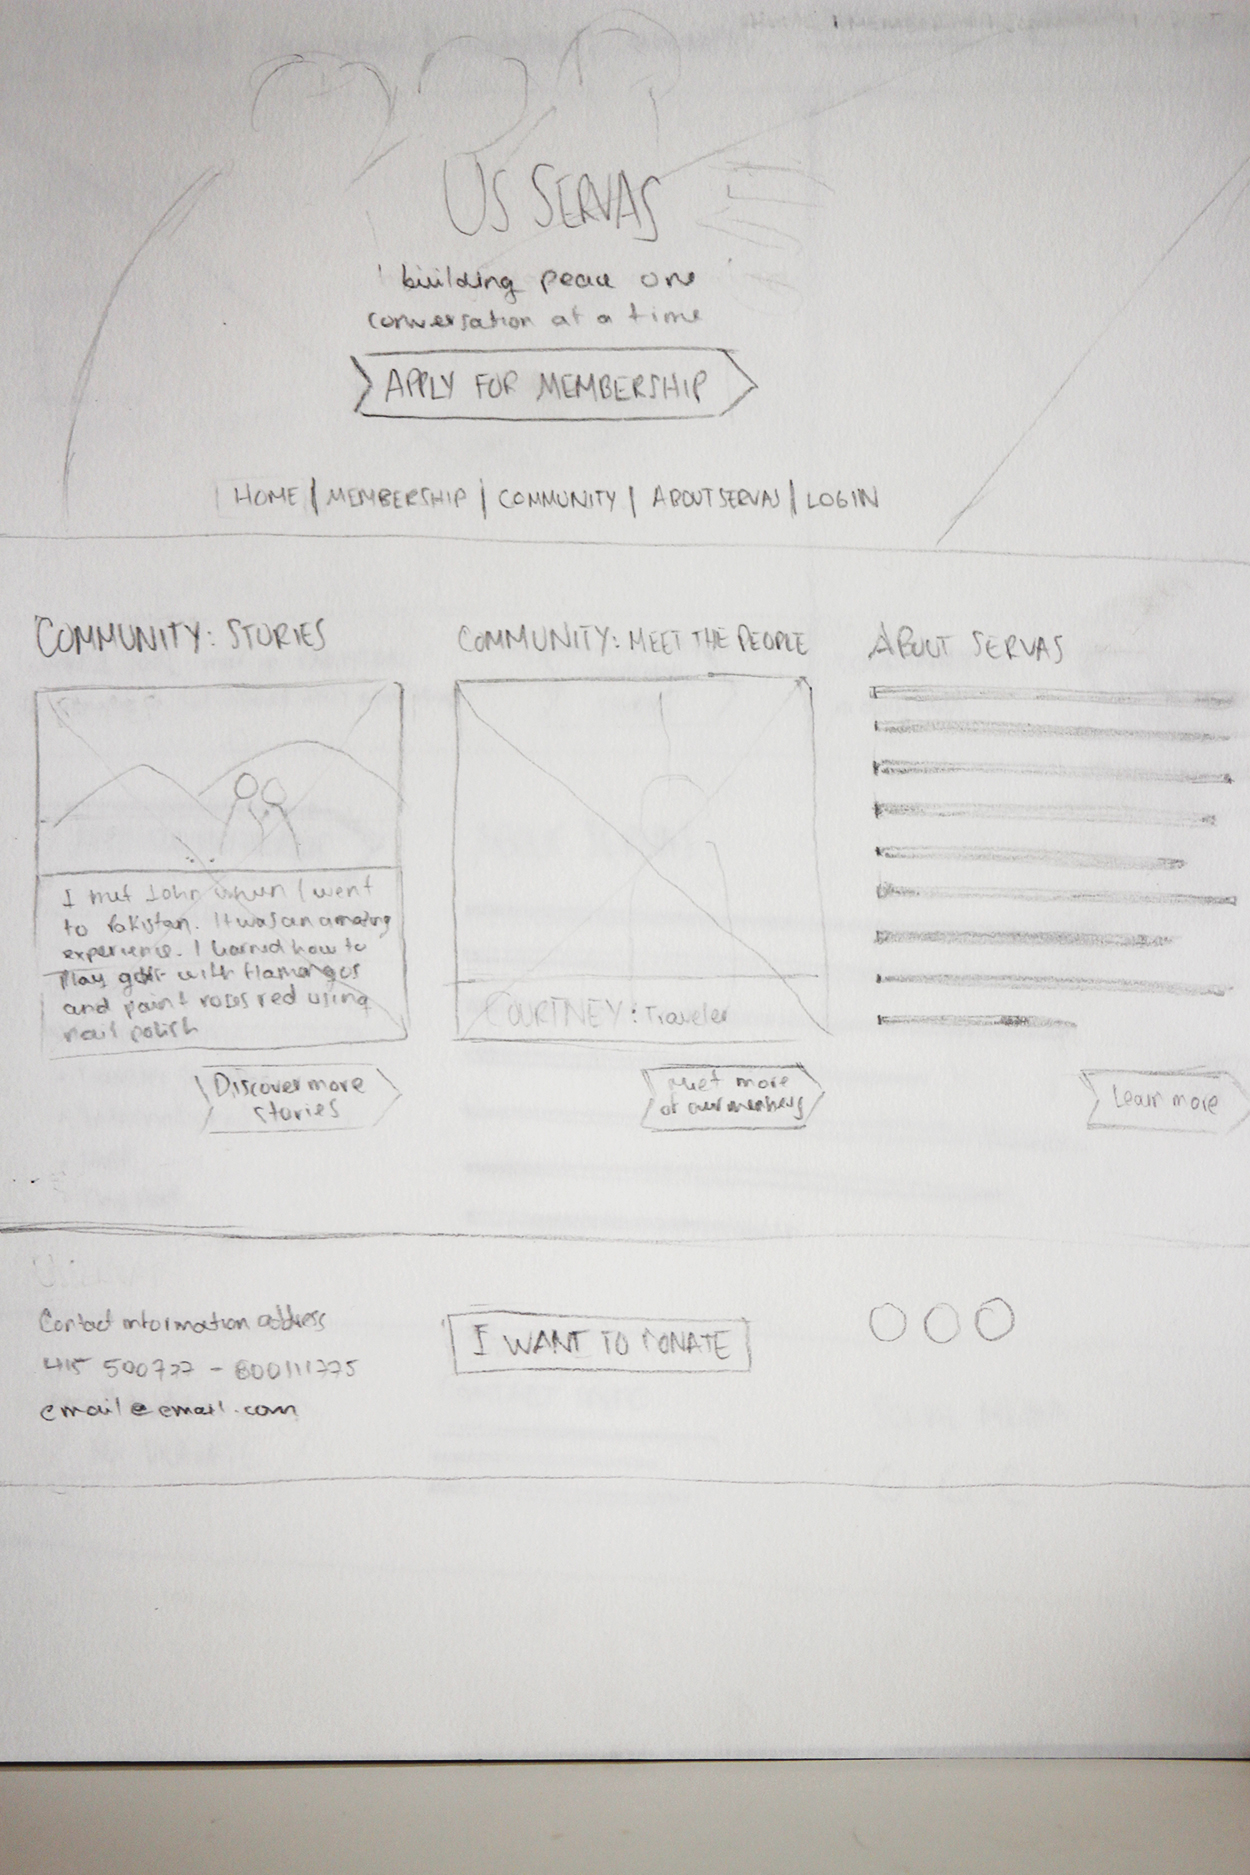 US SERVAS
building peace one
conversation at a time
APPLY FOR MEMBERSHIP
HOME | MEMBERSHIP | COMMUNITY | ABOUT SERVAS | LOGIN
COMMUNITY: STORIES
I met John when I went
to Pakistan. It was an amazing
experience. I learned how to
Play golf with flamengos
and paint roses red using
nail polish
Discover more
stories
COMMUNITY: MEET THE PEOPLE
COURTNEY: Traveler
Meet more
of our members
ABOUT SERVAS
Learn more
Contact information address
415 500727 - 800111775
email@email.com
I WANT TO DONATE